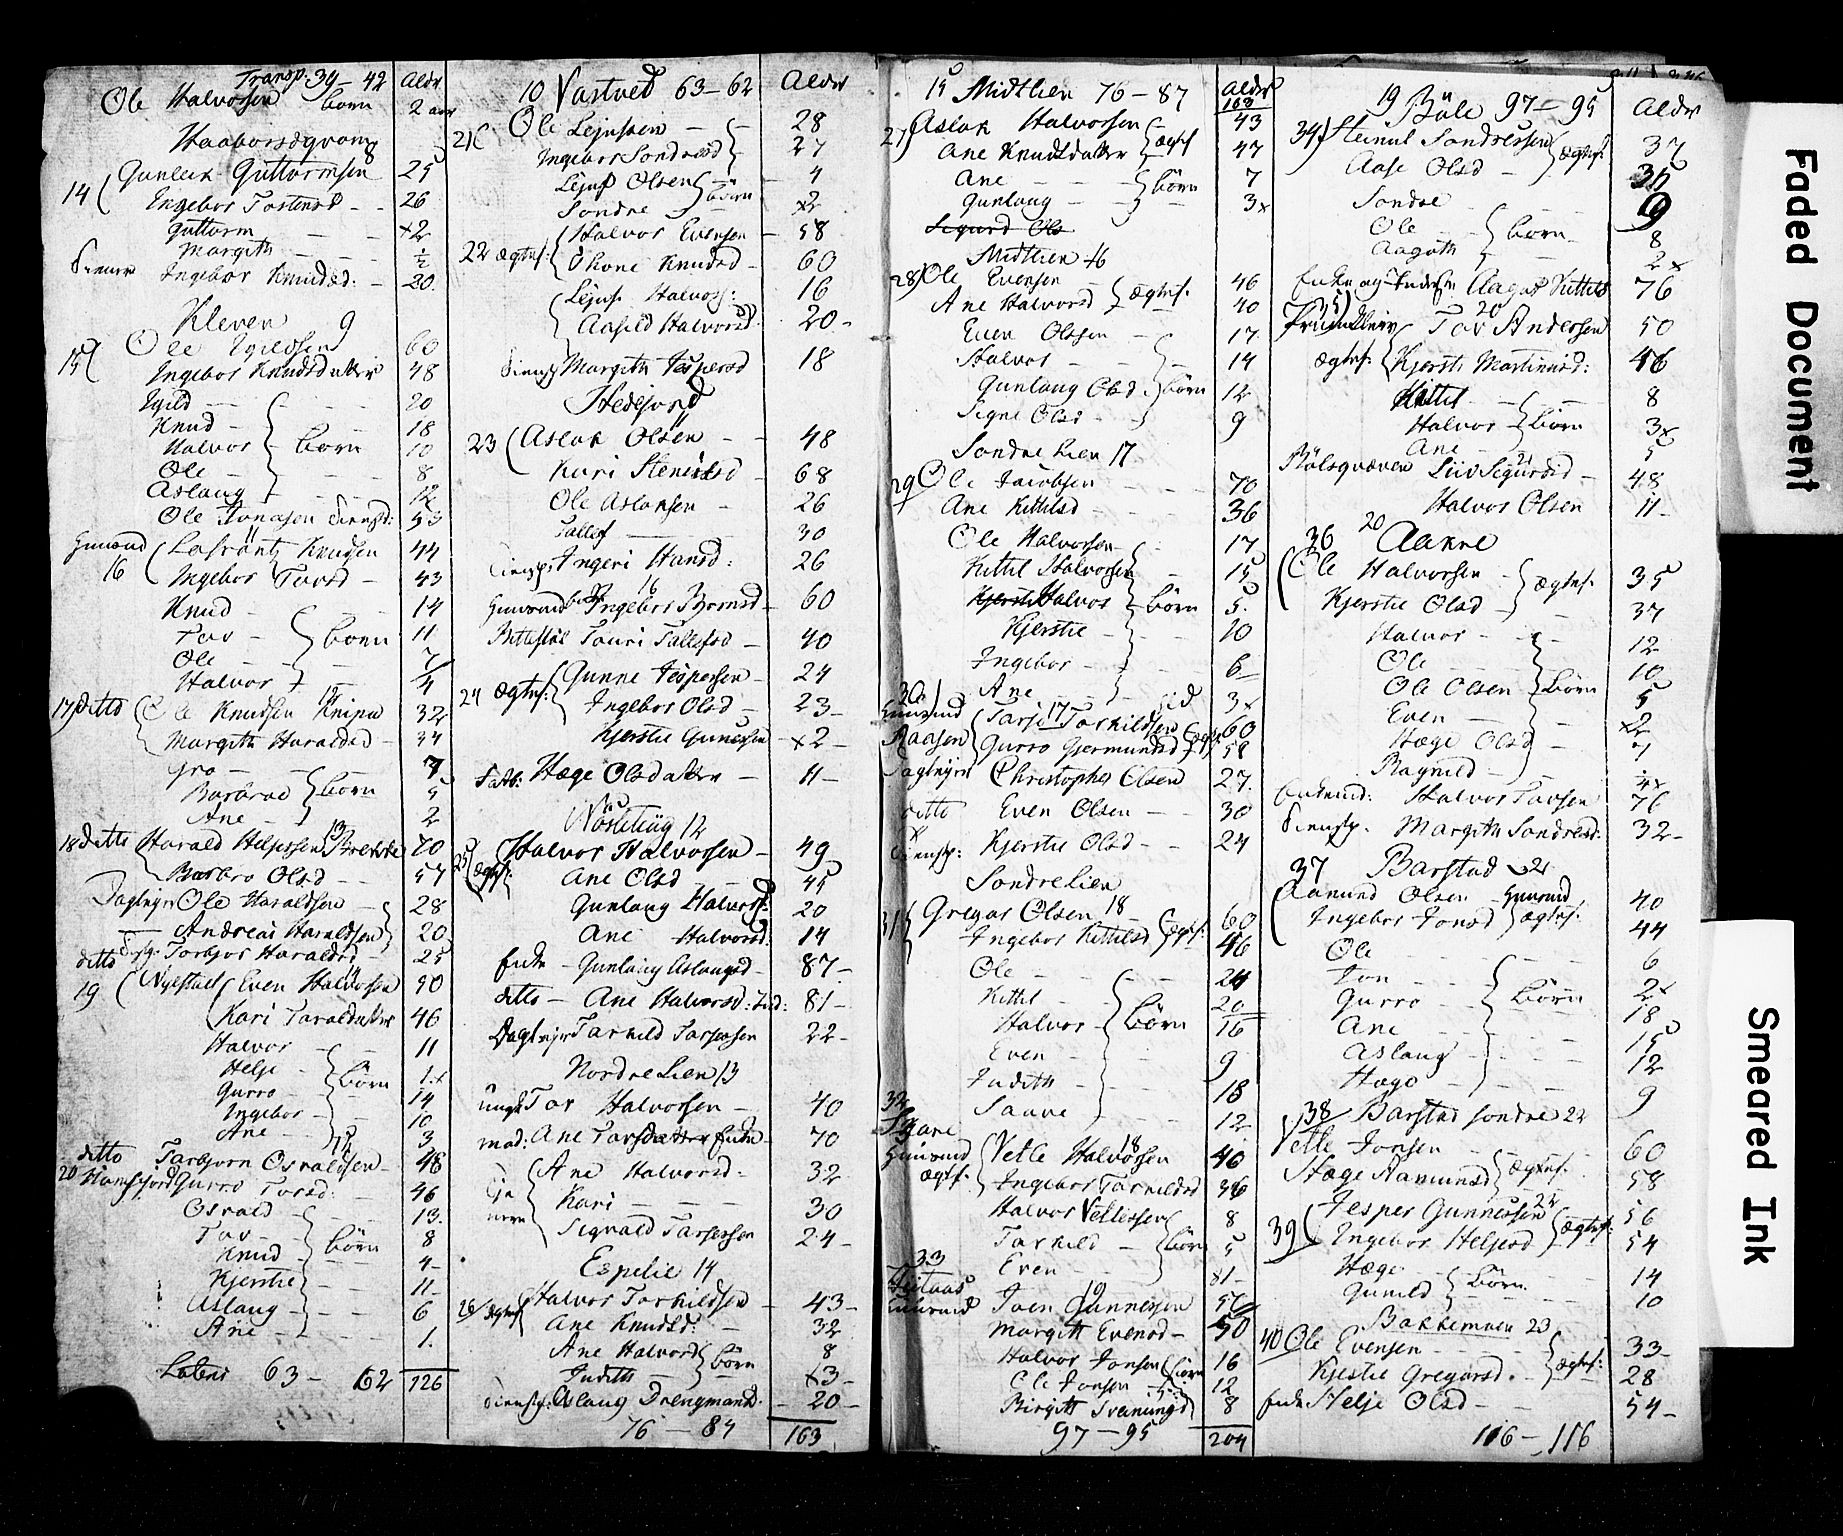 Transp: 39 — 42 Aldr
Ole Halvorsen born 2 aar
Haaborsqvam 8
14 Gunleik Gutturmsen 25
Ingebor Tostensd 26
Gutturm x2
Margith ½
Ingebor Knudsd: 20.
Kleven 9
15 Ole 60
Ingebor Knudsdatter 48
20
Knud 18
Halvor born 10
Ole 8
Aslaug 12
Ole Jonasen tienst: 53
Huusmd 16 Knudsen 44
Ingebor Tovsd 43
Knud 14
Tov born 11
Ole 7
Halvor 4
17 ditto Ole Knudsen Knipa 32
Margith Haraldsd 34
Gro 7
Barbroe born 5
Ane 2
18 ditto Harald Heljesen Brekke 13 70
Barbro Olsd 57
Daglejer Ole Haraldsen 28
Andreas Haraldsen 20
ditto Torbjor Haraldsd 25
19 Nystad Even Halvorsen 14 90
Kari Taraldsdatter 46
Halvor 11
Helje born 1.x
Gurro 14
Ingebor 10
Ane 3
ditto Tarbjorn Osvaldsen 48
20 Gurro Torsd: 46
Osvald 13.
Tov 8
Knud börn 4
Kjerstie 11
Aslaug 6
Ane 1.
Lateris 63 — 62 126
10 Vastved 63 — 62 Aldr
21 Ole Lejufsen 28
Ingebor Sondresd 27
Lejuf Olsen 4
Sondre börn x2
22 ægtef: Halvor Evensen 58
Thone Knudsd 60
Lejuf Halvors: 16
Aasild Halvorsd 20
Margith Jespersd 18
Hedejord 11
23 Aslak Olsen 48
Kari Stenersd 68
Ole Aslaksen 26
Tallef 30
Ingeri Hansd: 26
Huusmd Ingebor Biornsd 60
Tauri Tallefsd 40
24 ægtef: Gunne Jespersen 24
Ingebor Olsd 23
Kjerstie Gunnersen x2
Hæge Olsdatter 11
Nöseteiig 12
25 Halvor Halvorsen 49
ægtf: Ane Olsd 45
Gunlaug Halvorsd: 20
Ane Halvorsd: 14
Enke Gunlaug Aslaugsd 87
ditto Ane Halvorsd: 81
Daglejer Tarkild Tarjersen 22
Nordre Lien 13
ungk: Tor Halvorsen 40
mod: Ane Tarsdatter Enke 70
Ane Halvorsd. 32
Kari 30
Sigvald Tarjersen 24
Espelie 14
26 ægtef Halvor Tarkildsen 43
Ane Knudsd: 32
Ane Halvord 8
Judith börn x3
tienstp: Aslaug Drengmand. 20
76 — 87 163
15 Midtlien 76 — 87 Aldr
163
27 Aslak Halvorsen 43
Ane Knudsdatter ægtf 47
Ane 7
Gunlaug börn 3x
Sigurd Ols
Midtlien 16
28 Ole Evensen 46
Ane Halvorsd ægtef: 40
Even Olssen 17
Halvor 14
Gunlaug Olsd. börn 12
Signe Olsd 9
Sondre Lien 17
29 Ole Jacobsen 70
Ane Kittilsd 36
Ole Halvorsen 17
Kittil Halvorsen 15
Kjersti Halvor börn 5.
Kjerstie 10
Ingebor 6
Ane 3x
30 Huusmd Tarje Tarkildsen 17 60
Aaasen Gurro Gjermundsd 58
Daglejer Christopher Olsen 27.
ditto Even Olsen 30
tienstp: Kjerstie Olsd 24
Sondre Lien
31 Gregar Olsen 18 60
Ingebor Kittilsd ægtf: 46
Ole 24
Kittil 20
Halvor Börn 16
Even 9
Judith 18
Sauve 12
32 Huusmd Vetle Halvorsen 18 40
ægtf. Ingebor Tarkildsd 36
Halvor Vetlessen 8
Tarkild börn 5
Even 81
33 Huusmd Joen Gunnessen 19 57
Margitt Evensd 50
Halvor Jonsen 16
Ole Jonsen börn 12
Birgitt 8
97 — 95 204
19 Böle 97 — 95 Aldr
34 Steinul Sondressen 37
Aase Olsd ægtef. 35
Sondre 9
Ole börn 8
Aagoth 2x
Aagot Kittils 76
35 Tov Andersen 20 50
ægtef. Kjersti Martinusd: 46
Kittil 8
Halvor börn 3x
Ane 5
Bölsqværen Liiv Sigursd 21 48
Halvor Olsen 11
36 Aakre 20
Ole Halvorsen 35
Kjerstie Olsd ægtef. 37
Halvor 12
Ole 10
Ole Olsen Börn 5
Even x2
Hæge Olsd 7
Ragnild 4x
Halvor Tarjsen 76
tienstp. Margith Sondresd: 32
37 Barstad 21
Aamund Olsen Huusmd 40
Ingebor Jonsd ægtef: 44
Ole 6
Jon 2x
Gurro Börn 18
Ane 15
Aslaug 12
Hæge 9
38 Barstad søndre 22
Vetle Jonsen 60
Hæge Aamundsd ægtef. 58
39 Jesper Gunnersen 22 56
Ingebor Heljesd ægtef: 54
Hæge 14
Gunild börn. 10
Bakkemoen 23
40 Ole Evensen 33
Kjestie Gregarsd. ægtf: 28
Enke Helje Olsd 54
116 — 116
Faded Document
Smeared Ink